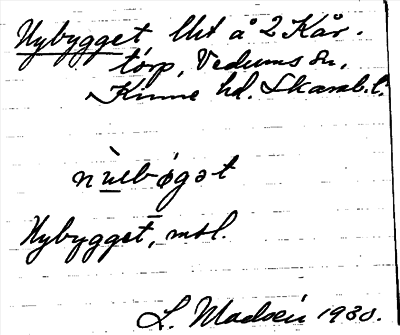 Nybygget lht å 2 Kår-
torp, Vedums sn,
Kinne hd. Skarab. l.
nùebøgət
Nybygget, msl.
L. Madsén 1930.